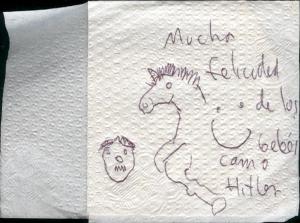 Mucha
felicidad
de los
bebés
como
Hitler